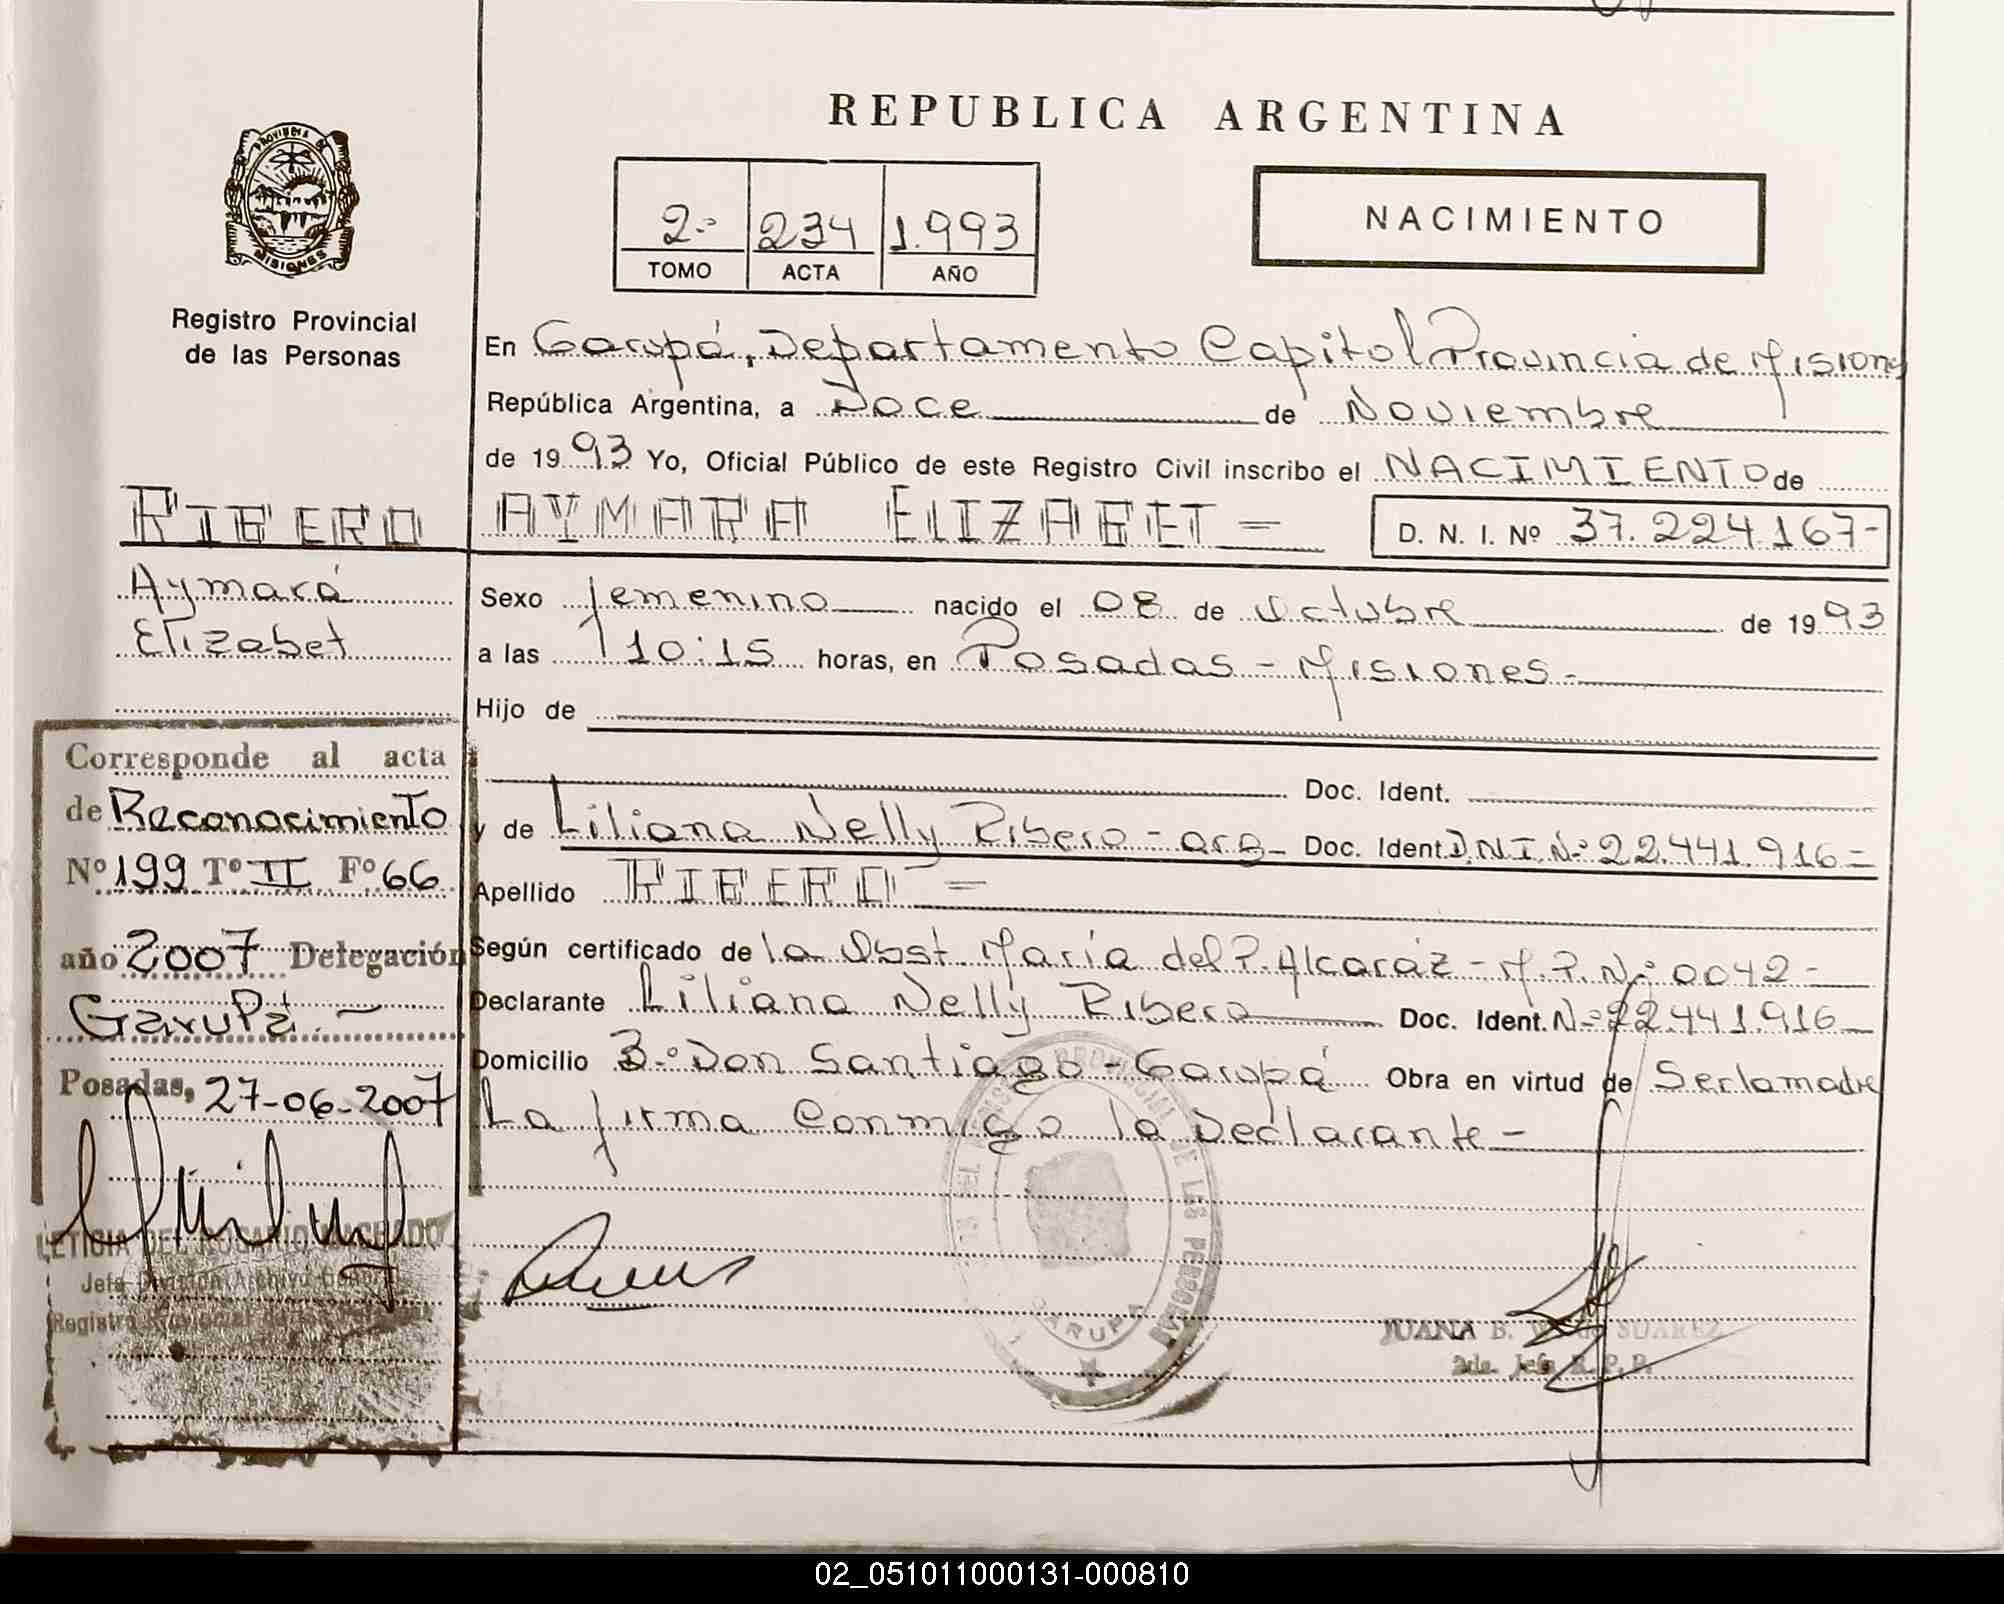 REPUBLICA ARGENTINA
PROVINCIA DE
MISIONES
Registro Provincial
de las Personas
2º 234 1.993
TOMO ACTA AÑO
NACIMIENTO
En Garupá, Departamento Capital Provincia de Misiones
República Argentina, a Doce de Noviembre
de 1993 Yo, Oficial Público de este Registro Civil inscribo el NACIMIENTO de
RIBERO AYMARA ELIZABET = D. N. I. Nº 37.224.167-
Aymará
Elizabet
Sexo femenino nacido el 08 de Octubre de 1993
a las 10:15 horas, en Posadas - Misiones -
Hijo de
Doc. Ident.
y de Liliana Nelly Ribero - arg - Doc. Ident. D.N.I. Nº 22.441.916 =
Apellido RIBERO =
Según certificado de la Obst. María del P. Alcaraz - M.P. Nº 0042 -
Declarante Liliana Nelly Ribero Doc. Ident. Nº 22.441.916
Domicilio Bº Don Santiago - Garupá Obra en virtud de Ser la madre
La firma Conmigo la Declarante -
Corresponde al acta
de Reconocimiento
Nº 199 Tº II Fº 66
año 2007 Delegación
Garupá. -
Posadas, 27-06-2007
LETICIA DEL ROSARIO MACHADO
Jefa División Archivo General
Registro Provincial de las Personas
DE LAS PERSONAS
GARUPA
JUANA B. V. de SUAREZ
2da. Jefa R. P. P.
02_051011000131-000810